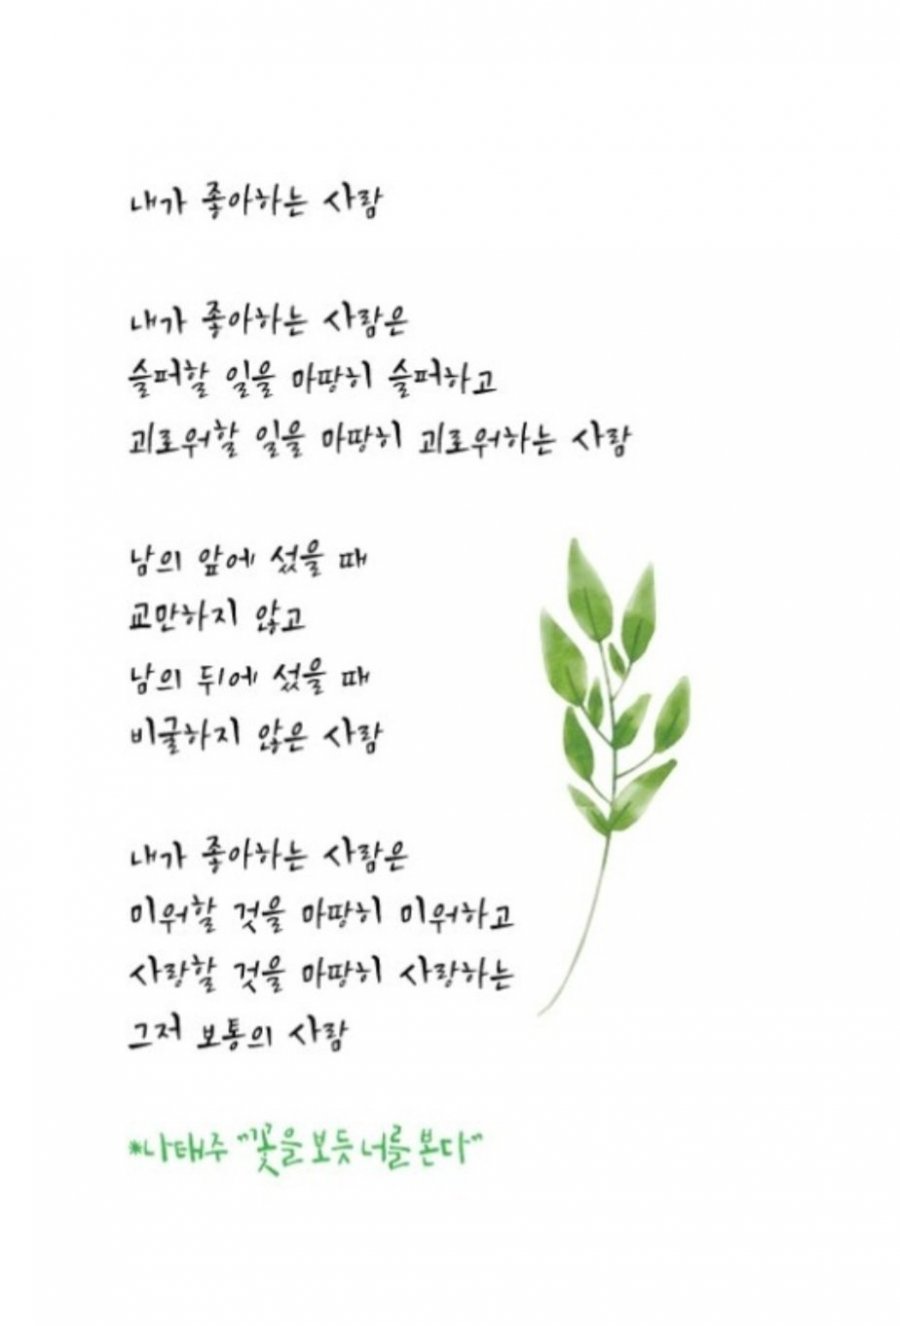 내가 좋아하는 사람
내가 좋아하는 사람은
슬퍼할 일을 마땅히 슬퍼하고
괴로워할 일을 마땅히 괴로워하는 사람
남의 앞에 섰을 때
교만하지 않고
남의 뒤에 섰을 때
비굴하지 않은 사람
내가 좋아하는 사람은
미워할 것을 마땅히 미워하고
사랑할 것을 마땅히 사랑하는
그저 보통의 사람
*나태주 "꽃을 보듯 너를 본다"